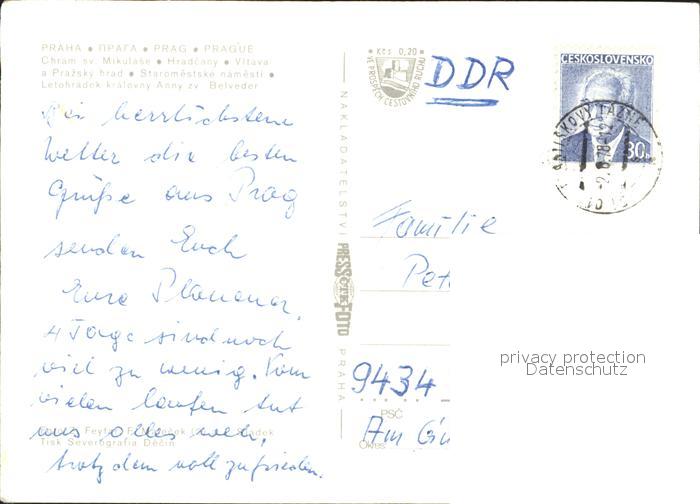 PRAHA • ПРАГА • PRAG • PRAGUE
Chrám sv. Mikuláše • Hradčany • Vltava
a Pražský hrad • Staroměstské náměstí •
Letohrádek královny Anny zv. Belveder
Bei herrlichstem
Wetter die besten
Grüße aus Prag
senden Euch
Eure
4 Tage sind noch
viel zu wenig. Vom
vielen laufen tut
uns alles weh,
trotzdem voll zufrieden.
Tisk Severografia Děčín
NAKLADATELSTVÍ
PRESSFOTO
PRAHA
Kčs 0,20
VE PROSPĚCH CESTOVNÍHO RUCHU
DDR
ČESKOSLOVENSKO
30
Familie
Pet
9434
PSČ
Am
Okres
privacy protection
Datenschutz